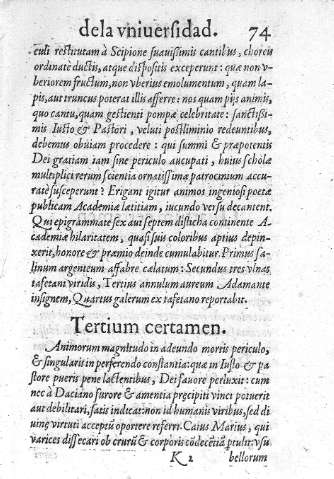 dela vniuersidad. 74
culi restitutam à Scipione suauissimis cantibus, choreis
ordinatè ductis, atque dispositis exceperunt: quæ non v-
beriorem fructum, non vberius emolumentum, quam la-
pis, aut truncus poterat illis afferre: nos quam pijs animis,
quo cantu, quam gestienti pompæ celebritate: sanctissi-
mis Iusto & Pastori, veluti postliminio redeuntibus,
debemus obuiam procedere: qui summi & præpotentis
Dei gratiam iam sine periculo aucupati, huius scholæ
multiplici rerum scientia ornatissimæ patrocinium accu-
ratè susceperunt? Erigant igitur animos ingeniosi poetæ
publicam Academiæ lætitiam, iucundo versu decantent.
Qui epigrammate sex aut septem disticha continente A-
cademiæ hilaritatem, quasi suis coloribus aptius depin-
xerit, honore & præmio deinde cumulabitur. Primus sa-
linum argenteum affabre cælatum: Secundus tres vlnas
tafetani viridis, Tertius annulum aureum Adamante
insignem, Quartus galerum ex tafetano reportabit.
Tertium certamen.
Animorum magnitudo in adeundo mortis periculo,
& singularis in perferendo constantia: quæ in Iusto & pa
store pueris pene lactentibus, Dei fauore perluxit: cum
nec à Daciano furore & amentia præcipiti vinci potuerit
aut debilitari, satis indicat: non id humanis viribus, sed di
uinæ virtuti acceptū oportere referri. Caius Marius, qui
varices dissecari ob crurū & corporis cōdecētiā ptulit: vsu
K 2 bellorum